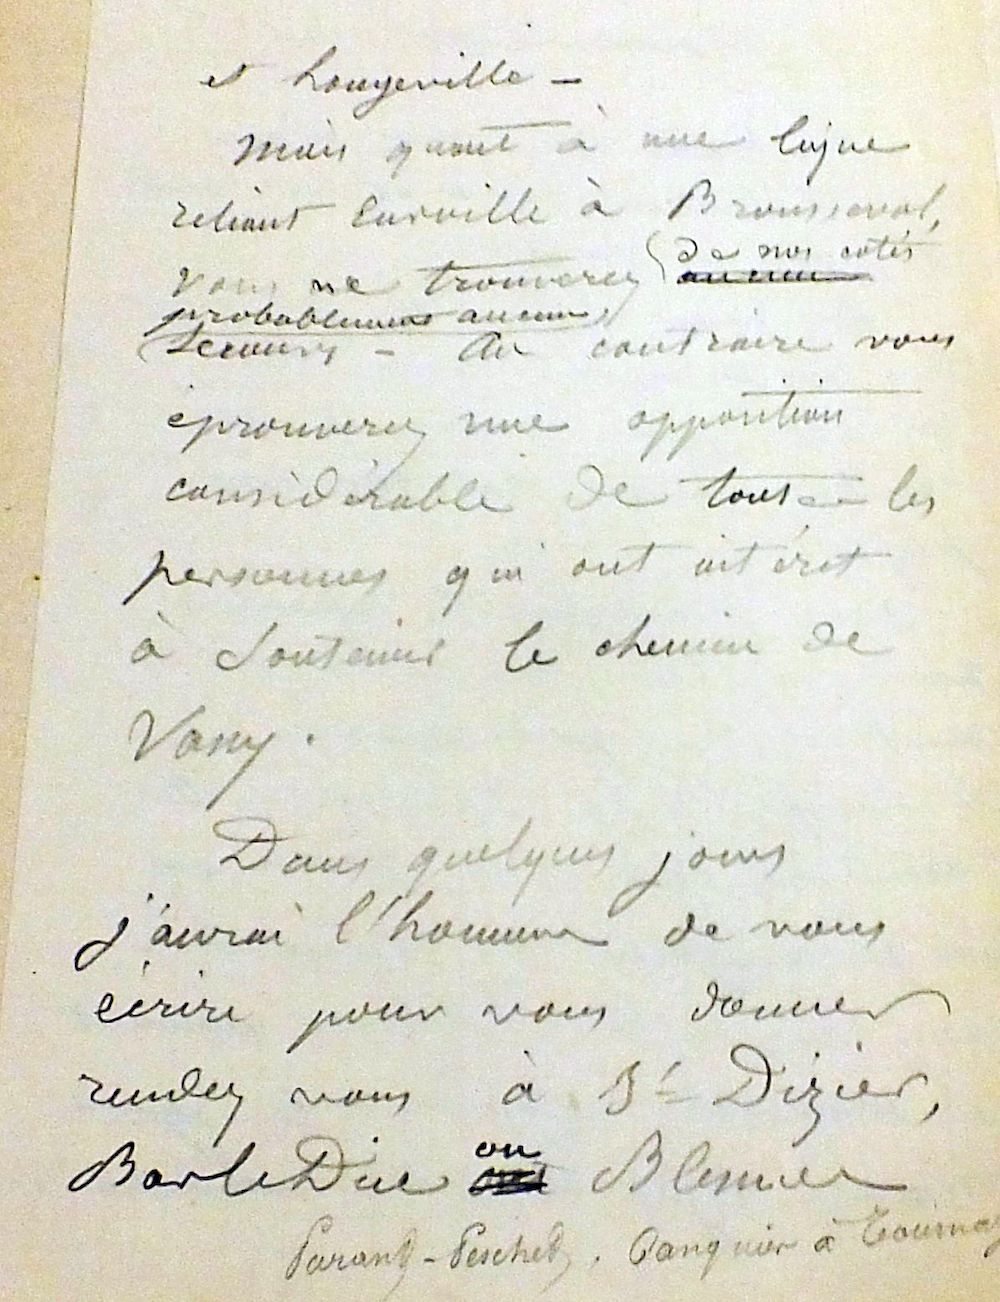 et Longeville –
Mais quant à une ligne
reliant Eurville à Brousseval,
vous ne trouverez de nos cotés
probablement aucun
secours – Au contraire vous
éprouverez une opposition
considérable de toutes les
personnes qui ont intérêt
à soutenir le chemin de
Vassy.
Dans quelques jours
j'aurai l'honneur de vous
écrire pour vous donner
rendez vous à St Dizier,
Bar le Duc ou Blesmes
Banquier à Tournay